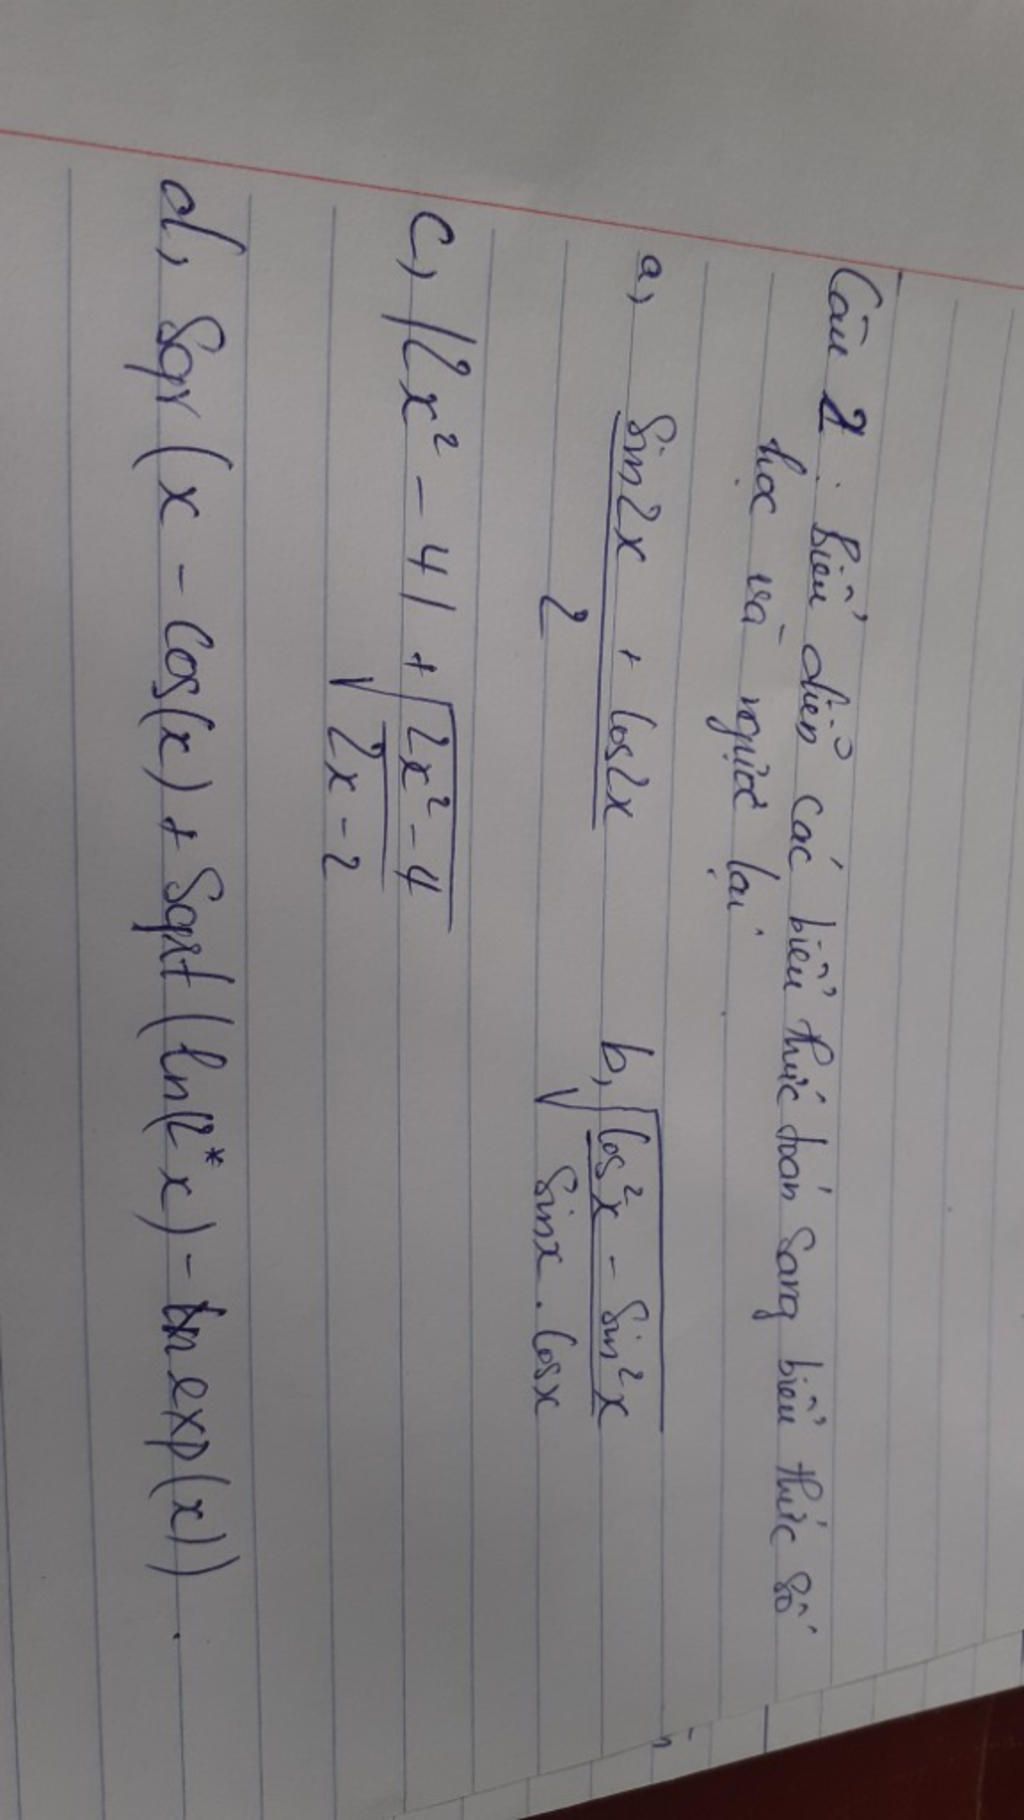 Câu 2: Biểu diễn các biểu thức toán sang biểu thức số
học và ngược lại.
a, (sin2x + cos2x)/2 b, √((cos²x - sin²x)/(sinx . cosx))
c, |2x² - 4| + √((2x² - 4)/(2x - 2))
d, Sqr(x - cos(x) + Sqrt(ln(2*x) - exp(x)).